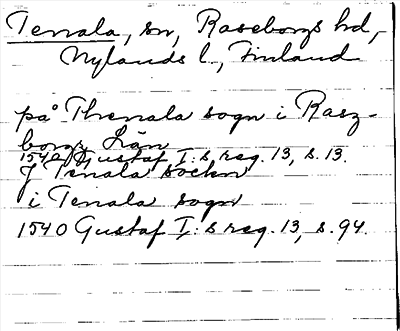 Tenala, sn, Raseborgs hd,
Nylands l., Finland
på Thenala sogn i Rasz-
borgs Län
1540 Gustaf I:s reg. 13, s. 13.
J Tenala sockn
i Tenala sogn
1540 Gustaf I:s reg. 13, s. 94.